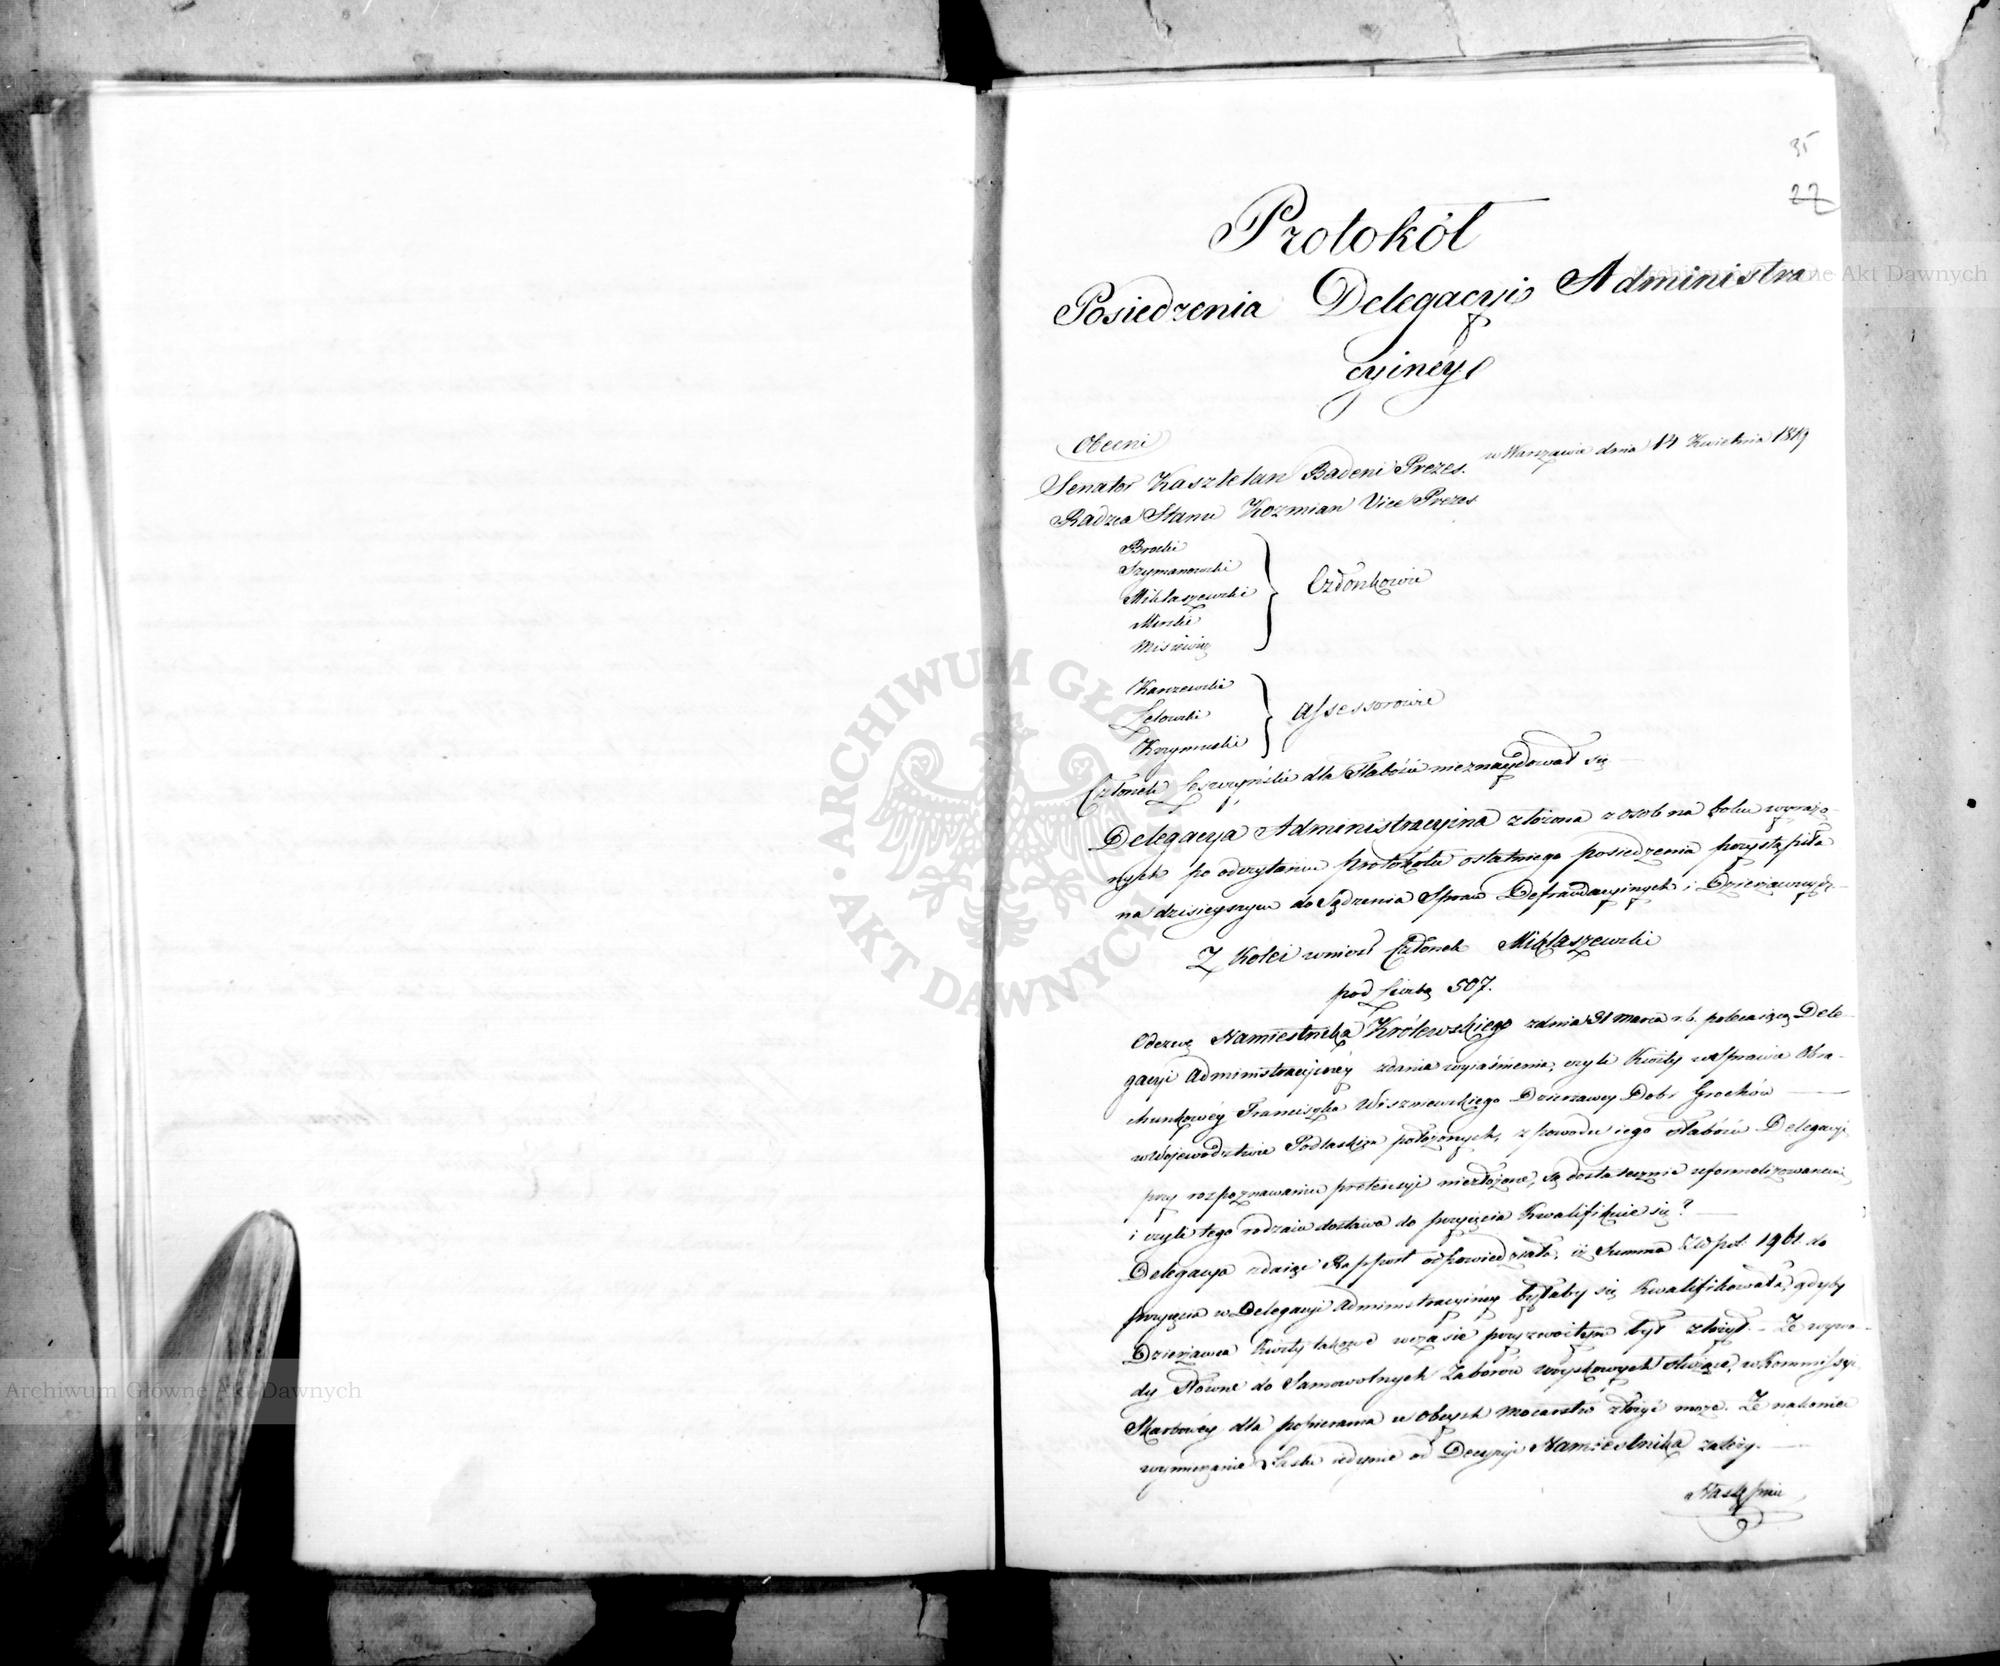 35
22
Protokół
Posiedzenia Delegacyi Administra
cyinéy
Obecni
w Warszawie dnia 14 Kwietnia 1819
Senator Kasztelan Badeni Prezes.
Radzca Stanu Kozmian Vice Prezes
Brocki
Szymanowski
Miklaszewski
Mirski
Członkowie
Karczewski
Łetowski
Krzymuski
Assessorowie
Członek Leszczyński dla Słabości nieznaydował się
Delegacya Administracyina złożona z osob na boku wyrażo-
nych po odczytaniu protokółu ostatniego posiedzenia przystąpiła
na dzisieyszym do Sądzenia Spraw Defraudacyinych i Dzierżawnych
Z Kolei wniosł Członek Miklaszewski
pod Liczbą 507.
Odezwę Namiestnika Królewskiego z dnia 31 marca r.b. polecaiącą Dele-
gacyi Administracyinéy zdania wyjaśnienia, czyli Kwity w Sprawie Obra-
chunkowéy Franciszka Wiszniewskiego Dzierżawcy Dobr Grochów
w Wojewodztwie Podlaskim położonych, z powodu iego słabości Delegacyi
przy rozpoznawaniu pretensyi niezłożone, są dostatecznie uformalizowanemi,
i czyli tego rodzaiu dostawa do przyięcia Kwalifikuie się?
Delegacya zdaiąc Rapport odpowiedziała, iż Summa Złłpol. 1961 do
przyięcia w Delegacyi Administracyinéy byłaby się Kwalifikowała, gdyby
Dzierżawca Kwity takowe w czasie przyzwoitym był złożył. - Że wywo-
dy Słowne do Samowolnych Zaborów woyskowych służące, w Kommissyi
Skarbowéy dla popierania u Obcych Mocarstw złożyć może. Że nakoniec
wymierzanie Łaski iedynie od Decyzyi Namiestnika zależy.
Następnie
ARCHIWUM GŁÓWNE AKT DAWNYCH
Archiwum Główne Akt Dawnych
Archiwum Główne Akt Dawnych